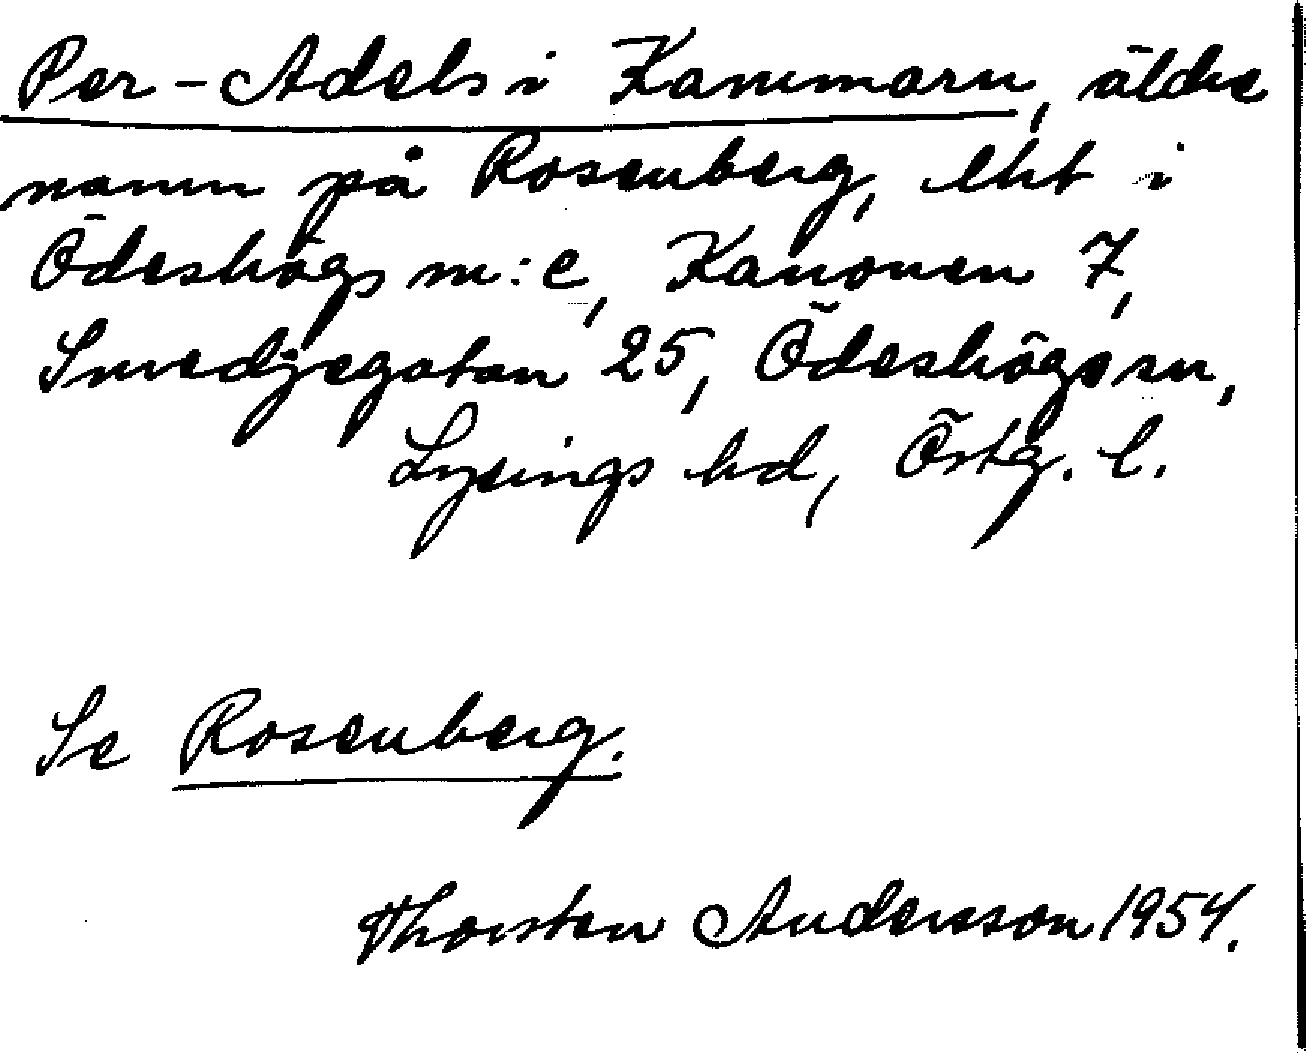 Per-Adels i Kammarn, äldre
namn på Rosenberg, lht i
Ödeshögs m:e, Kanonen 7,
Smedjegatan 25, Ödeshögs sn,
Lysings hd, Östg. l.
Se Rosenberg.
Thorsten Andersson 1954.